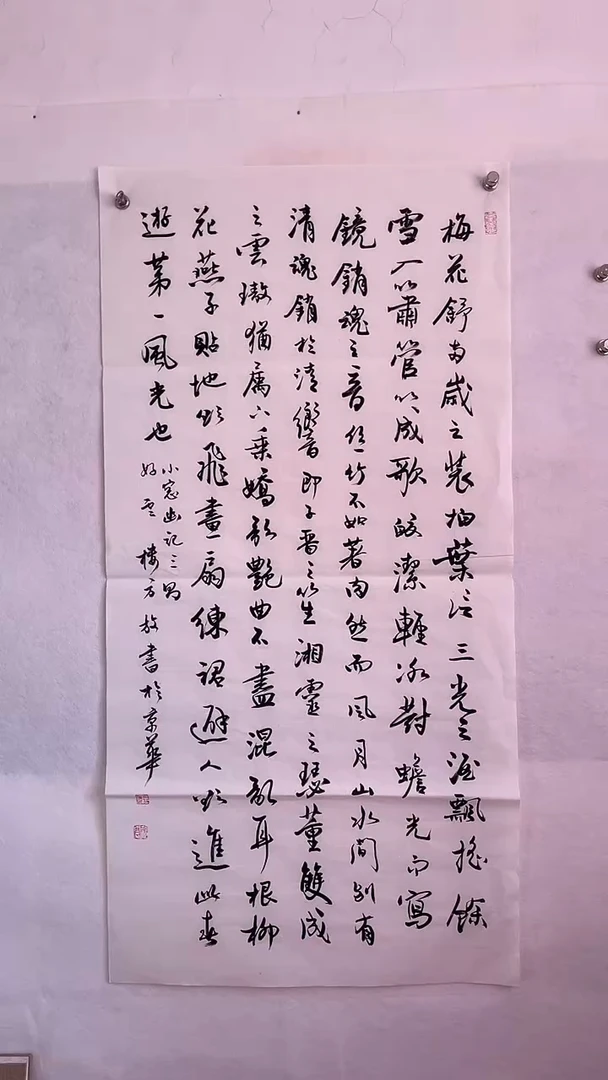 梅花舒兩歲之裝柏葉泛三光之酒飄搖餘
雪入簫管以成歌皎潔輕冰對蟾光而寫
鏡銷魂之音絲竹不如著肉然而風月山水間別有
清魂銷於清響即子晉之笙湘靈之瑟董雙成
之雲璈猶屬下乘嬌歌艷曲不盡混亂耳根柳
花燕子貼地欲飛畫扇練裙避人欲進此春
遊第一風光也
小窗幽記三則
好雲樓方放書於京華